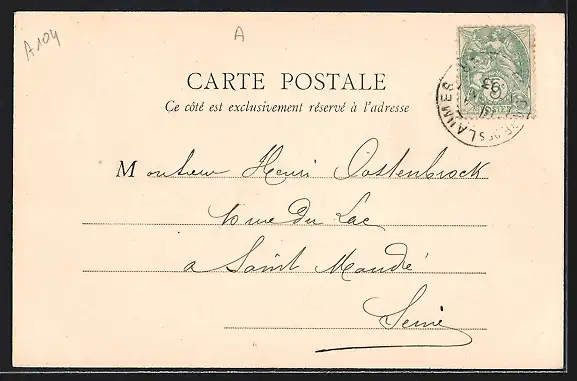 A104
A
CARTE POSTALE
Ce côté est exclusivement réservé à l'adresse
Monsieur Henri Oostenbroek
10 rue du Lac
a Saint Mandé
Seine